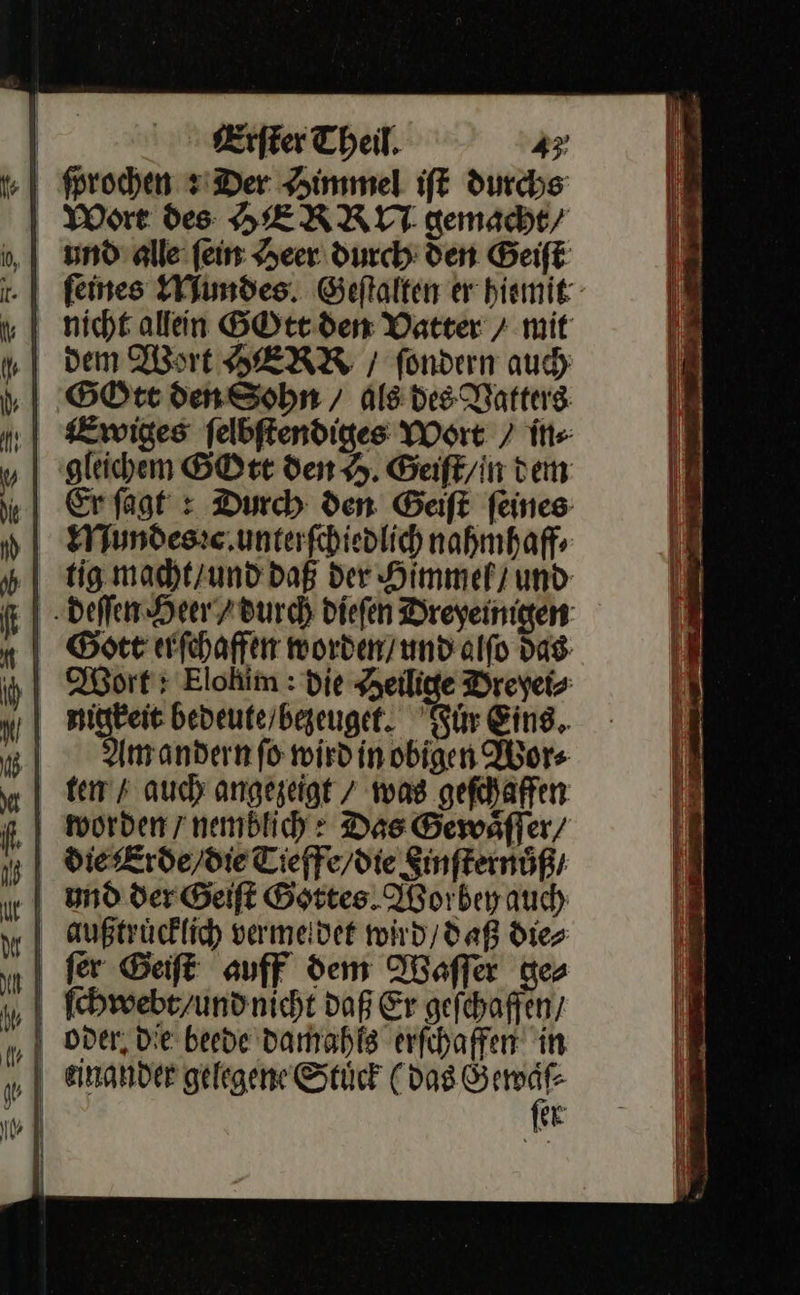 Erſter Theil. 43
ſprochen : Der Himmel iſt durchs
Wort des HERRN gemacht/
und alle ſein Heer durch den Geiſt
ſeines Mundes. Geſtalten er hiemit
nicht allein GOtt den Vatter / mit
dem Wort HERR / ſondern auch
GOtt den Sohn / als des Vatters
Ewiges ſelbſtendiges Wort / in⸗
gleichem GOtt den H. Geiſt/in dem
Er ſagt : Durch den Geiſt ſeines
Mundesꝛc.unterſchiedlich nahmhaff⸗
tig macht/und daß der Himmel/ und
deſſen Heer/ durch dieſen Dreyeinigen
Gott erſchaffen worden/ und alſo das
Wort : Elohim : die Heilige Dreyei⸗
nigkeit bedeute/bezeuget. Für Eins.
Am andern ſo wird in obigen Wor⸗
ten / auch angezeigt / was geſchaffen
worden / nemblich : Das Gewaͤſſer/
die Erde/die Tieffe/die Finſternuͤß/
und der Geiſt Gottes. Worbey auch
außtruͤcklich vermeldet wird/ daß die⸗
ſer Geiſt auff dem Waſſer ge⸗
ſchwebt/und nicht daß Er geſchaffen/
oder, die beede damahls erſchaffen in
einander gelegene Stuͤck ( das Gewaͤſ⸗
ſer